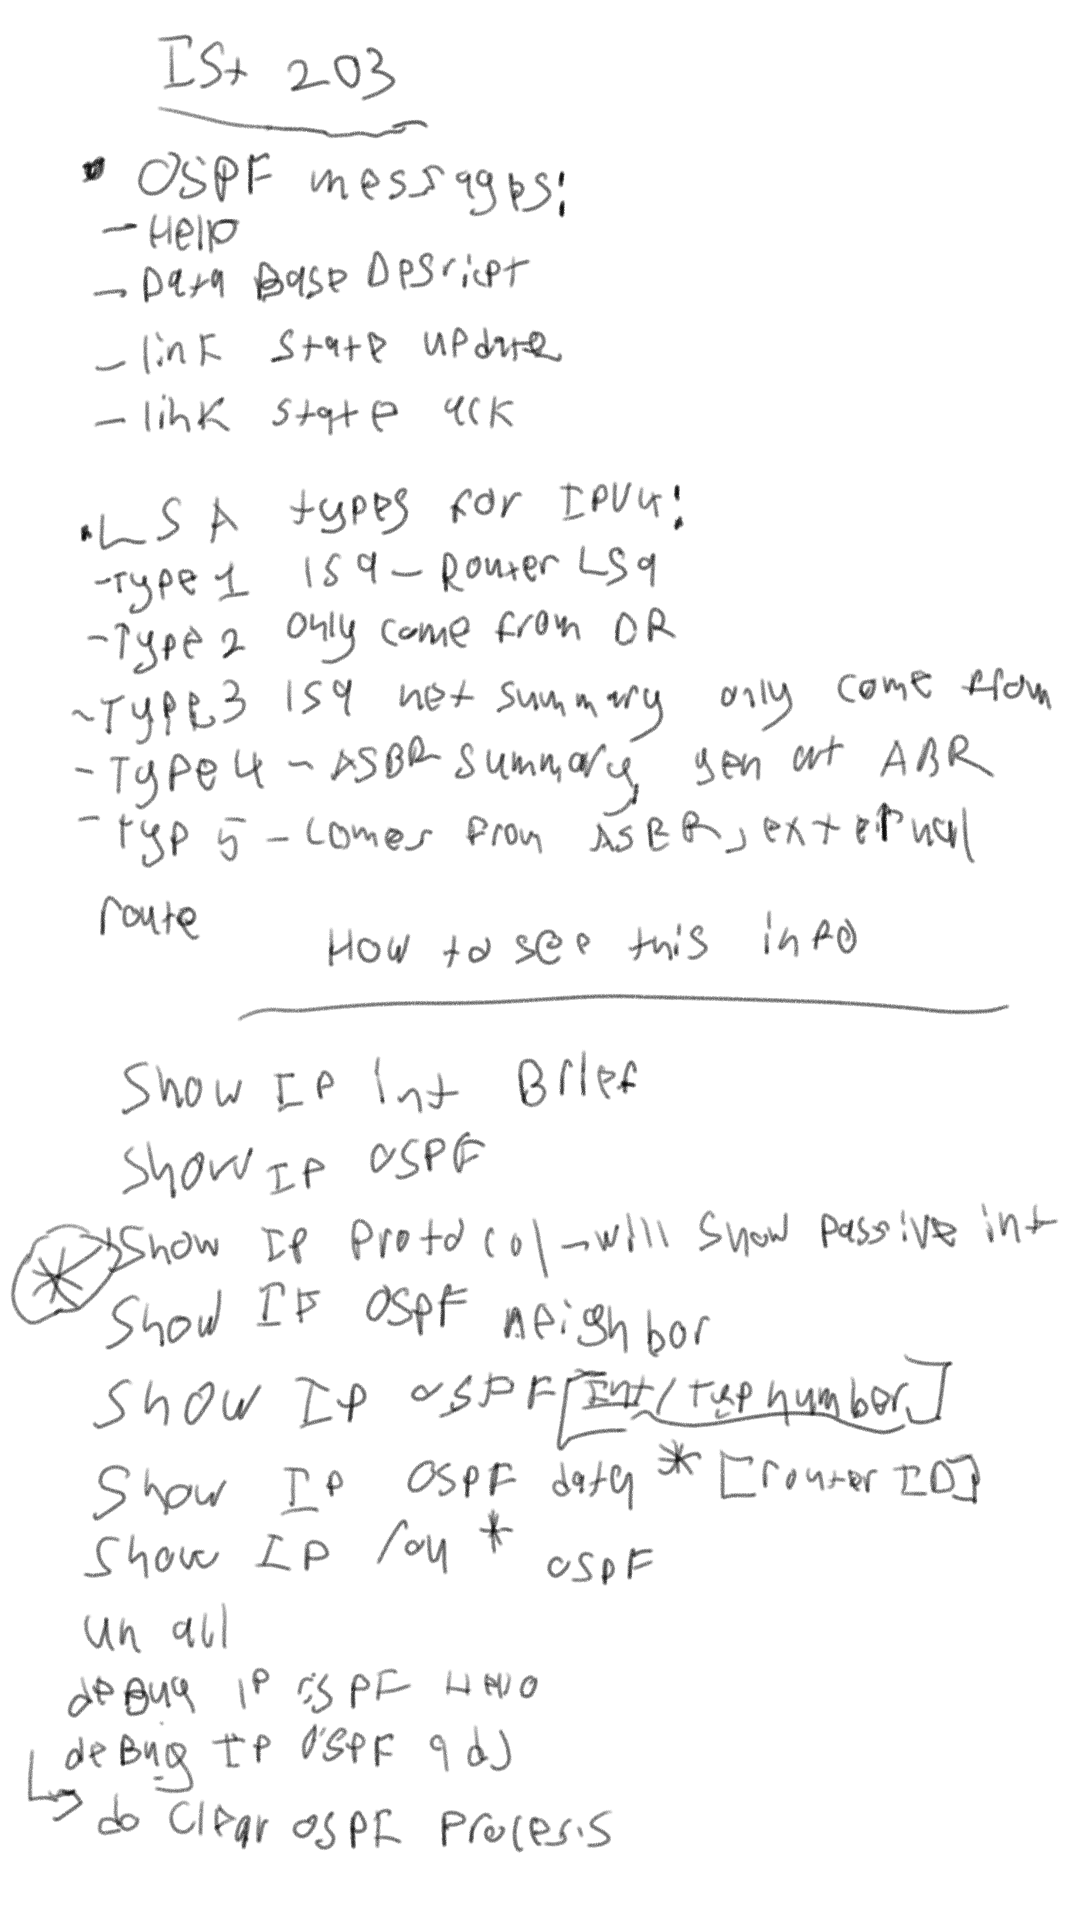 IST 203
• OSPF messages:
- Hello
- Data Base Dpsript
- link state update
- link state ack
• LSA types for IPV4:
- Type 1 lsa - Router LSa
- Type 2 only come from DR
- Type 3 lsa net summary only come from
- Type 4 - ASBR summary, gen at ABR
- Typ 5 - comes from ASBR, external
route
How to see this info
Show IP int Brief
Show IP OSPF
* Show IP Protocol - will show passive int
Show IP OSPF neighbor
Show IP OSPF [Int/typ number]
Show IP OSPF data * [router ID]
Show IP rou * OSPF
un all
deBug IP OSPF Hello
deBug IP OSPF adj
↳ do Clear OSPF Process